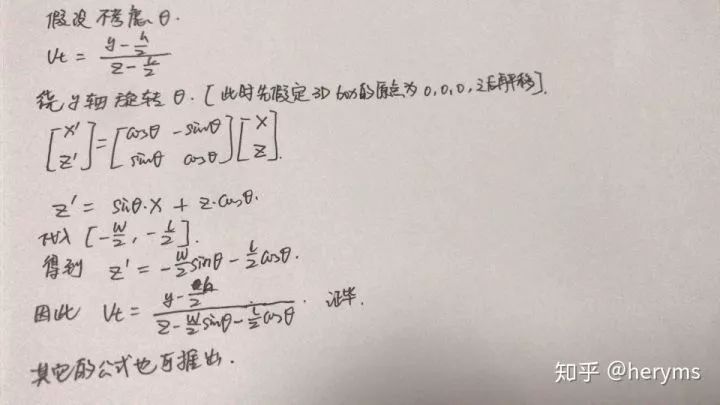 假设不考虑θ.
Vt = (y - h/2) / (z - L/2)
绕y轴旋转θ. [此时先假定3D box的原点为0,0,0,之后再平移].
[x' z'] = [cosθ -sinθ sinθ cosθ] [x z].
z' = sinθ·x + z·cosθ.
代入 [-w/2, -L/2].
得到 z' = -w/2 sinθ - L/2 cosθ.
因此 Vt = (y - h/2) / (z - w/2 sinθ - L/2 cosθ). 证毕.
其它的公式也可推出.
知乎 @heryms